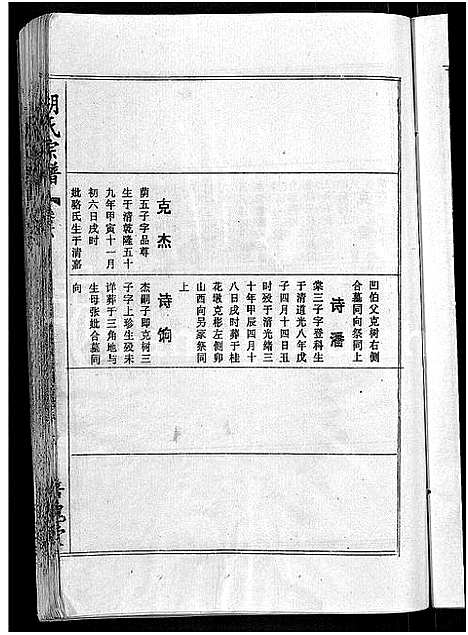 胡氏宗谱
克杰
荫五子字品尊
生于清乾隆五十
九年甲寅十一月
初六日戌时
妣骆氏生于清嘉
凹伯父克树右侧
合墓同向祭同上
诗潘
棠三子字登科生
于清道光八年戊
子四月十四日丑
时殁于清光绪三
十年甲辰四月十
八日戌时葬于桂
花墩克彬左侧卯
山西向另冢祭同
上
诗饷
杰嗣子即克树三
子字上珍生殁未
详葬于三角地与
生母张妣合墓同
向